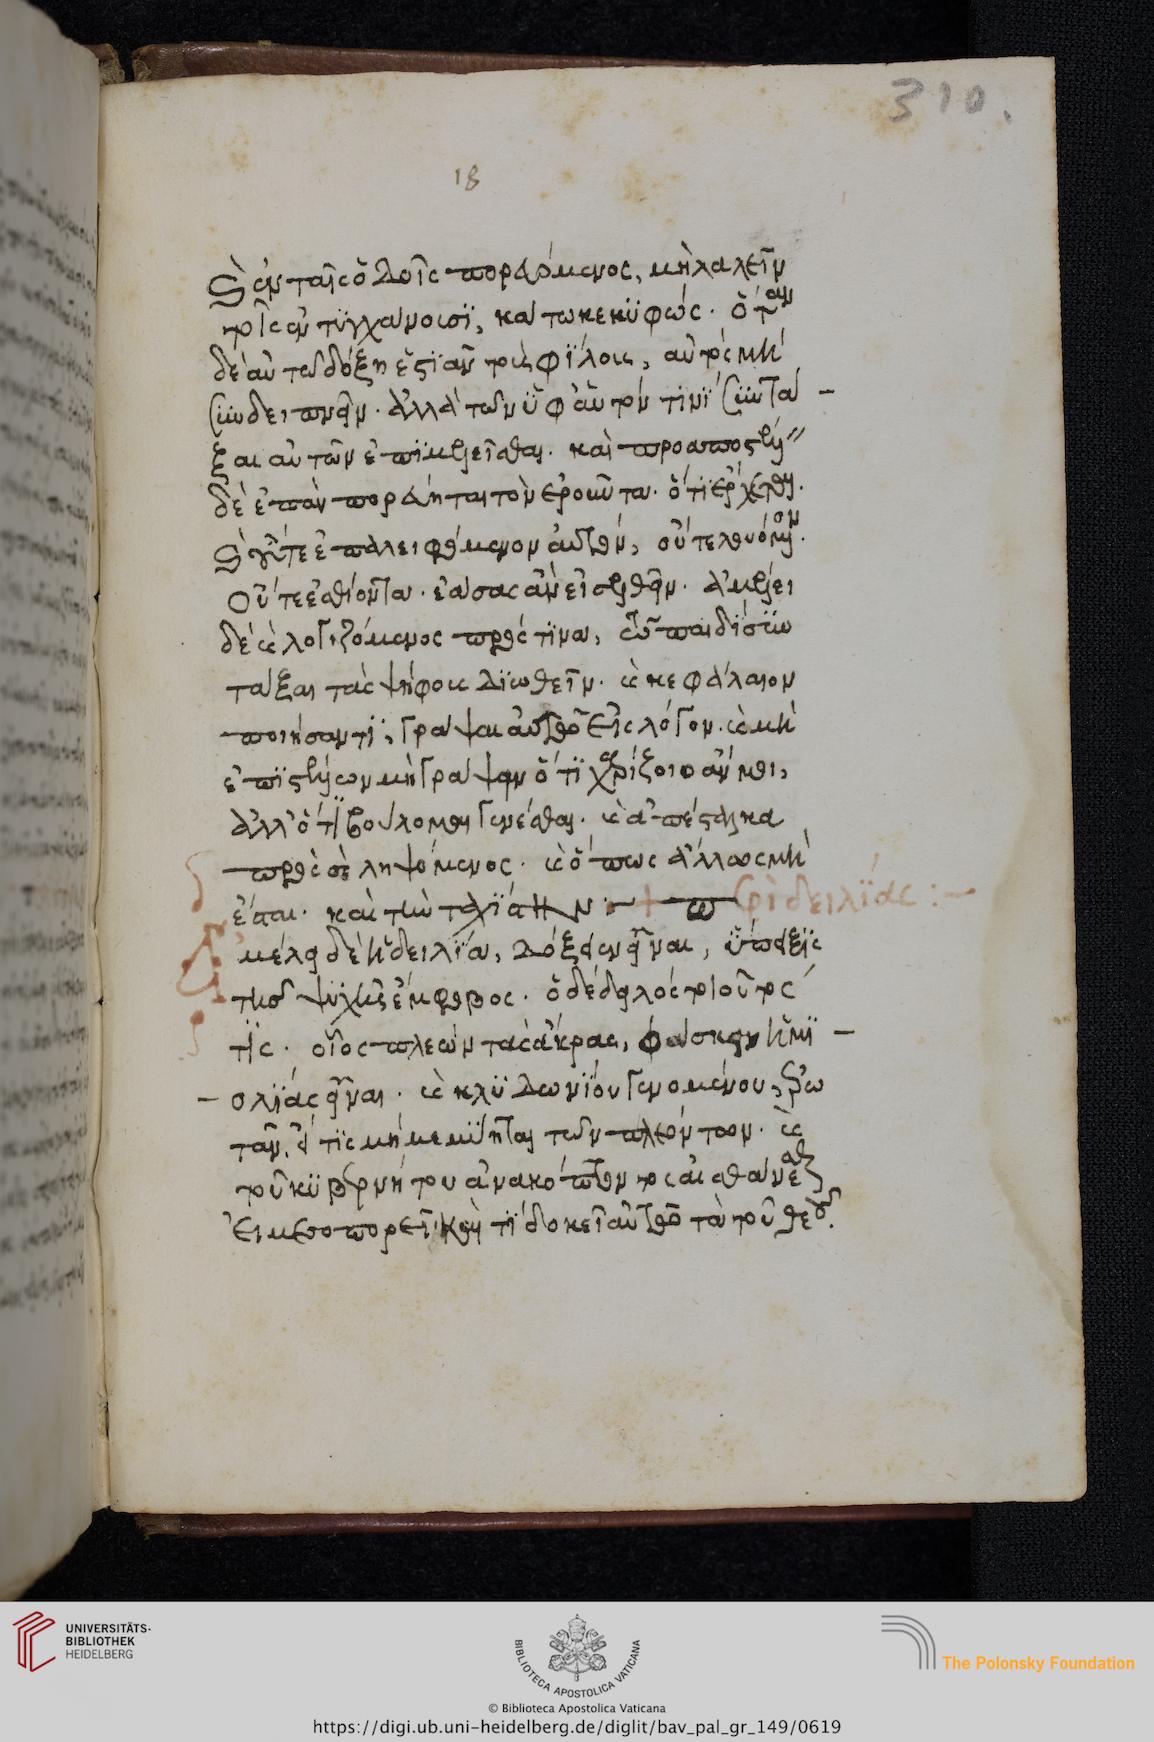 310.
18
καὶ ἐν ταῖς ὁδοῖς πορευόμενος, μὴ λαλεῖν
τοῖς ἐντυγχάνουσι, κάτω κεκυφώς. ὅταν
δὲ αὐτῶ δόξη ἑστιᾶν τοὺς φίλους, αὐτὸς μὴ
συνδειπνεῖν. ἀλλὰ τῶν ὑφ' αὑτόν τινι συντά-
ξαι αὐτῶν ἐπιμελεῖσθαι. καὶ
δὲ ἐπὰν πορεύηται τὸν ἐροῦντα. ὅτι
καὶ οὔτε ἐπαλειφόμενον αὐτὸν, οὔτε λουόμενον.
οὔτε ἐσθίοντα ἐάσας ἂν εἰσελθεῖν. ἀμέλει
δὲ καὶ λογιζόμενος πρός τινα, τῶ παιδὶ
τάξαι τὰς ψήφους διωθεῖν. καὶ κεφάλαιον
ποιήσαντι, γράψαι αὐτὸ εἰς λόγον. καὶ μὴ
ἐπιστέλλων μὴ γράφειν ὅτι χαρίζοιο ἄν μοι,
ἀλλ' ὅτι βούλομαι γενέσθαι. καὶ ἀπέσταλκα
πρὸς σὲ ληψόμενος. καὶ ὅπως ἄλλως μὴ
ἔσται. καὶ τὴν ταχίστην + περὶ δειλίας :-
Ἀμέλει δὲ ἡ δειλία, δόξειεν εἶναι, ὕπειξίς
τις ψυχῆς ἔμφοβος. ὁ δὲ δειλός τοιοῦτός
τις. οἷος πλέων τὰς ἄκρας, φάσκειν ἡμι-
-ολίας εἶναι. καὶ κλυδωνίου γενομένου, ἐρω
τᾶν, εἴ τις μὴ μεμύηται τῶν πλεόντων. καὶ
τοῦ κυβερνήτου ἀνακόπτων πρὸς αἰσθάνεσθαι
εἰ μεσοπορεῖ, καὶ τί δοκεῖ αὐτῶ τὰ τοῦ θεοῦ.
UNIVERSITÄTS-
BIBLIOTHEK
HEIDELBERG
BIBLIOTECA APOSTOLICA VATICANA
The Polonsky Foundation
© Biblioteca Apostolica Vaticana
https://digi.ub.uni-heidelberg.de/diglit/bav_pal_gr_149/0619